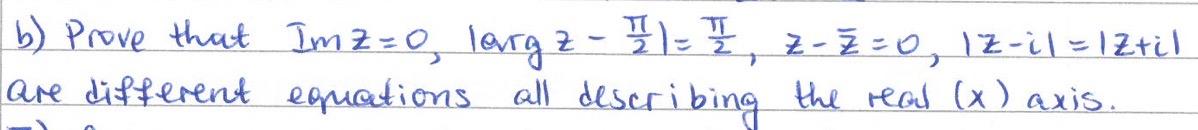 b) Prove that Im z = 0, |arg z - π/2| = π/2, z - z̄ = 0, |z-i| = |z+i|
are different equations all describing the real (x) axis.